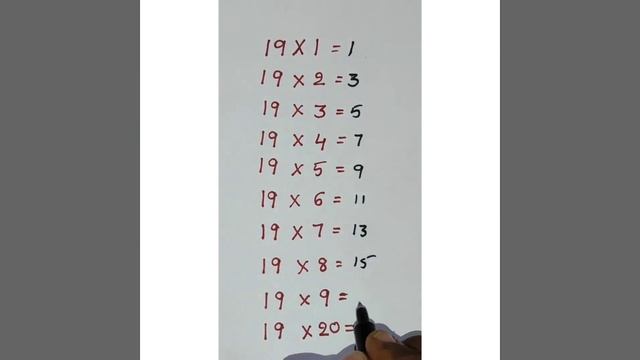 19 X 1 = 1
19 X 2 = 3
19 X 3 = 5
19 X 4 = 7
19 X 5 = 9
19 X 6 = 11
19 X 7 = 13
19 X 8 = 15
19 X 9 =
19 X 20 =